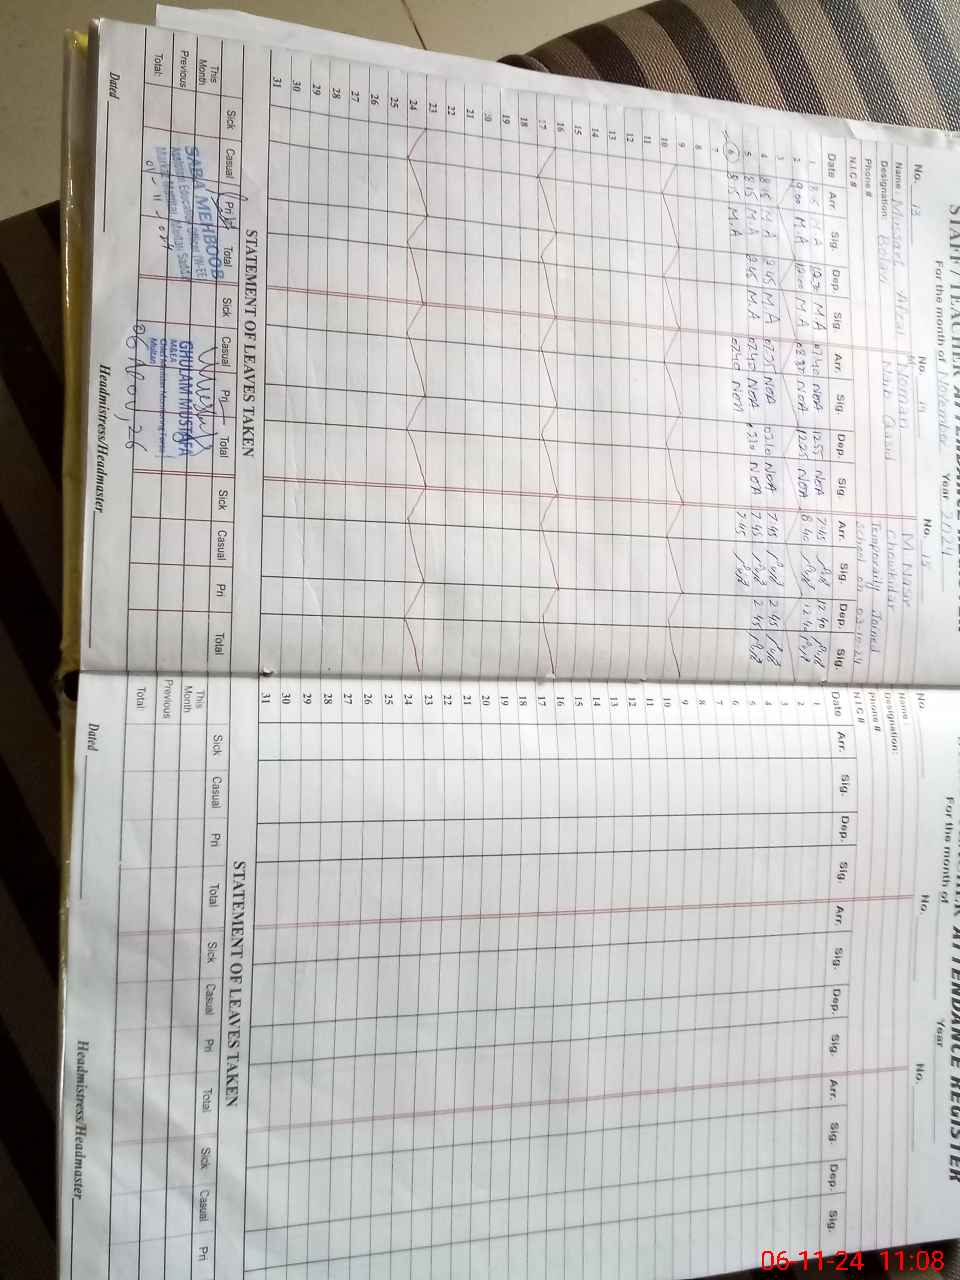 STAFF / TEACHER ATTENDANCE REGISTER
For the month of November Year 2024
No. 13 No. 14 No. 15
Name: Mussarat Afzal M Noman M. Nasir
Designation: Naib Qasid Chowkidar
Phone # Temporarily Joined
N.I.C # School on 03-10-24
Date Arr. Sig. Dep. Sig. Arr. Sig. Dep. Sig. Arr. Sig. Dep. Sig.
1 M.A M.A 0740 NOA 1255 NOA 7:45 12 40
2 9:00 M.A 12:00 M.A NOA 1225 NOA 8 40 12 40
3
4 8:15 M.A 2:45 M.A 0735 NOA 0210 NOA 7:45 2 45
5 8:15 M.A 2:45 M.A 0740 NOA 0210 NOA 7:45 2 45
6 8:15 M.A 0740 NOA 7:45
7
8
9
10
11
12
13
14
15
16
17
18
19
20
21
22
23
24
25
26
27
28
29
30
31
STATEMENT OF LEAVES TAKEN
Sick Casual Pri Total Sick Casual Pri Total Sick Casual Pri Total
This Month
Previous
Total:
SABA MEHBOOB
GHULAM MUSTAFA
M&EA
Chief Minister Monitoring Force
Multan
06 Nov, 26
Dated Headmistress/Headmaster
ATTENDANCE REGISTER
For the month of Year
No. No. No.
Name:
Designation:
Phone #
N.I.C #
Date Arr. Sig. Dep. Sig. Arr. Sig. Dep. Sig. Arr. Sig. Dep. Sig.
1
2
3
4
5
6
7
8
9
10
11
12
13
14
15
16
17
18
19
20
21
22
23
24
25
26
27
28
29
30
31
STATEMENT OF LEAVES TAKEN
Sick Casual Pri Total Sick Casual Pri Total Sick Casual Pri
This Month
Previous
Total:
Dated Headmistress/Headmaster
06-11-24 11:08